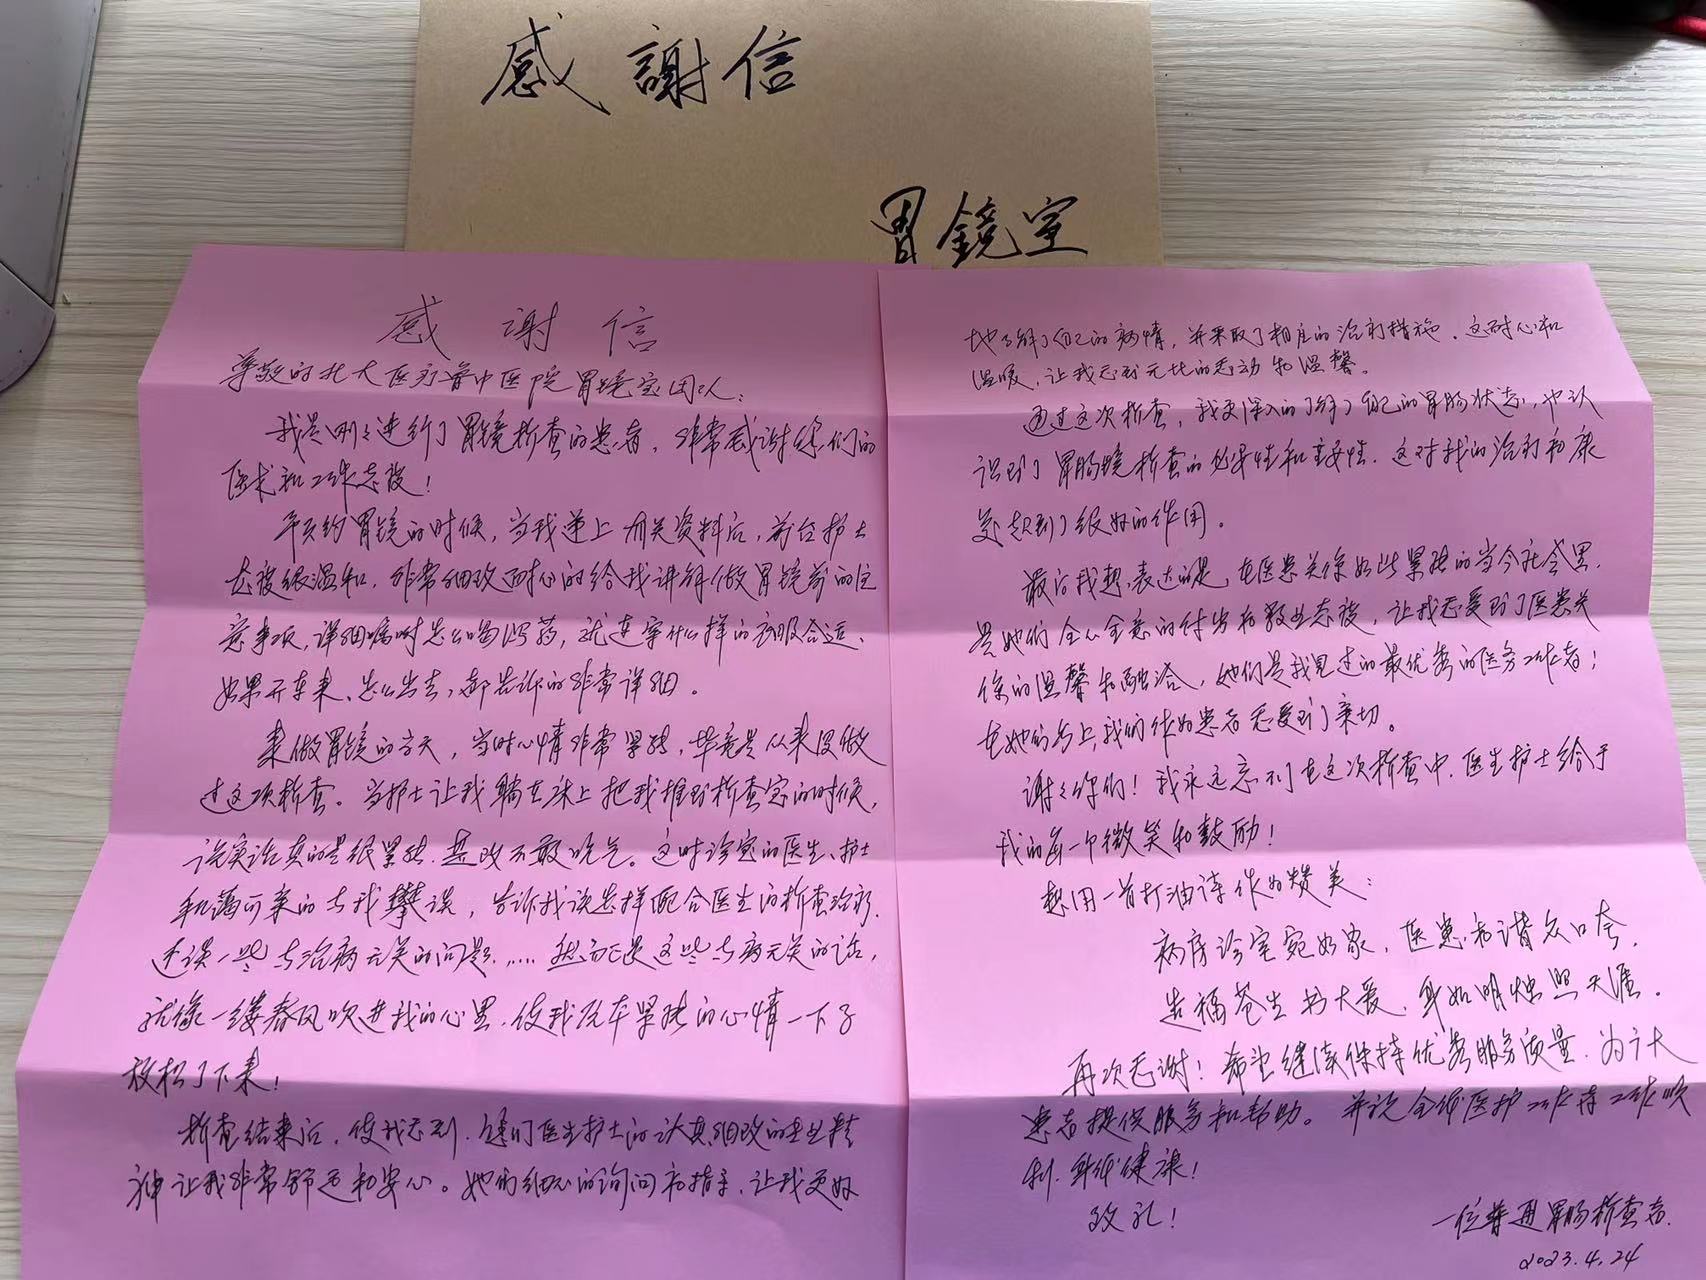 感謝信
胃鏡室
感谢信
尊敬的北大医疗鲁中医院胃镜室团队：
我是刚刚进行了胃镜检查的患者，非常感谢您们的
医术和工作态度！
予约胃镜的时候，当我递上相关资料后，前台护士
态度很温和，非常细致耐心的给我讲解做胃镜前的注
意事项，详细嘱咐怎么喝泻药，就连穿什么样的衣服合适、
如果开车来、怎么出去，都告诉的非常详细。
来做胃镜的当天，当时心情非常紧张，毕竟是从来没做
过这项检查。当护士让我躺在床上把我推到检查室的时候，
说实话真的是很紧张，甚致不敢吭气。这时诊室的医生、护士
和蔼可亲的与我攀谈，告诉我该怎样配合医生的检查治疗，
还谈一些与治病无关的问题……然而正是这些与病无关的话，
就像一缕春风吹进我的心里，使我原本紧张的心情一下子
放松了下来！
检查结束后，使我感到，她们医生护士的认真细致的专业精
神让我非常舒适和安心。她们细心的询问和指导，让我更好
地了解了自己的病情，并采取了相应的治疗措施。这耐心和
温暖，让我感到无比的感动和温馨。
通过这次检查，我更深入的了解了自己的胃肠状态，也认
识到了胃肠镜检查的必要性和重要性，这对我的治疗和康
复起到了很好的作用。
最后我想表达的是，在医患关系如此紧张的当今社会里，
是她们全心全意的付出和敬业态度，让我感受到了医患关
系的温馨和融洽，她们是我见过的最优秀的医务工作者！
在她们身上我们作为患者感受到了亲切。
谢谢你们！我永远忘不了在这次检查中，医生护士给于
我的每一个微笑和鼓励！
想用一首打油诗作为赞美：
病房诊室宛如家，医患和谐众口夸，
造福苍生书大爱，身如明烛照天涯。
再次感谢！希望继续保持优秀服务质量，为广大
患者提供服务和帮助。并祝全体医护工作者工作顺
利，身体健康！
致礼！
一位普通胃肠检查者
2023.4.24